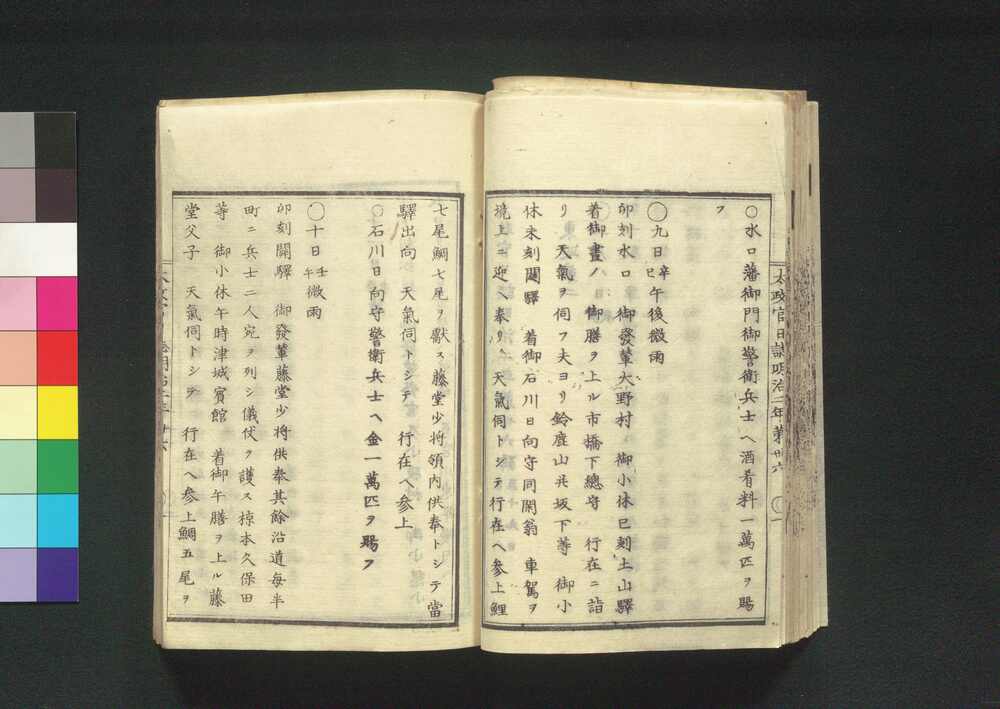 〇水口藩御門御警衛兵士ヘ酒肴料一萬匹ヲ賜
フ
〇九日辛巳午後微雨
卯刻水口 御發輦大野村 御小休巳刻土山驛
着御晝ノ 御膳ヲ上ル市橋下總守 行在ニ詣
リ 天氣ヲ伺フ夫ヨリ鈴鹿山共坂下等 御小
休未刻關驛 着御石川日向守同閑翁 車駕ヲ
境上ニ迎ヘ奉リ 天氣伺トシテ行在ヘ参上鯉
太政官日誌明治二年第卅六
七尾鯛七尾ヲ獻ス藤堂少將領内供奉トシテ當
驛出向 天氣伺トシテ 行在ヘ参上
〇石川日向守警衛兵士ヘ金一萬匹ヲ賜フ
〇十日壬午微雨
卯刻關驛 御發輦藤堂少將供奉其餘沿道毎半
町ニ兵士二人宛ヲ列シ儀仗ヲ護ス椋本久保田
等 御小休午時津城賓館 着御午膳ヲ上ル藤
堂父子 天氣伺トシテ 行在ヘ参上鯛五尾ヲ